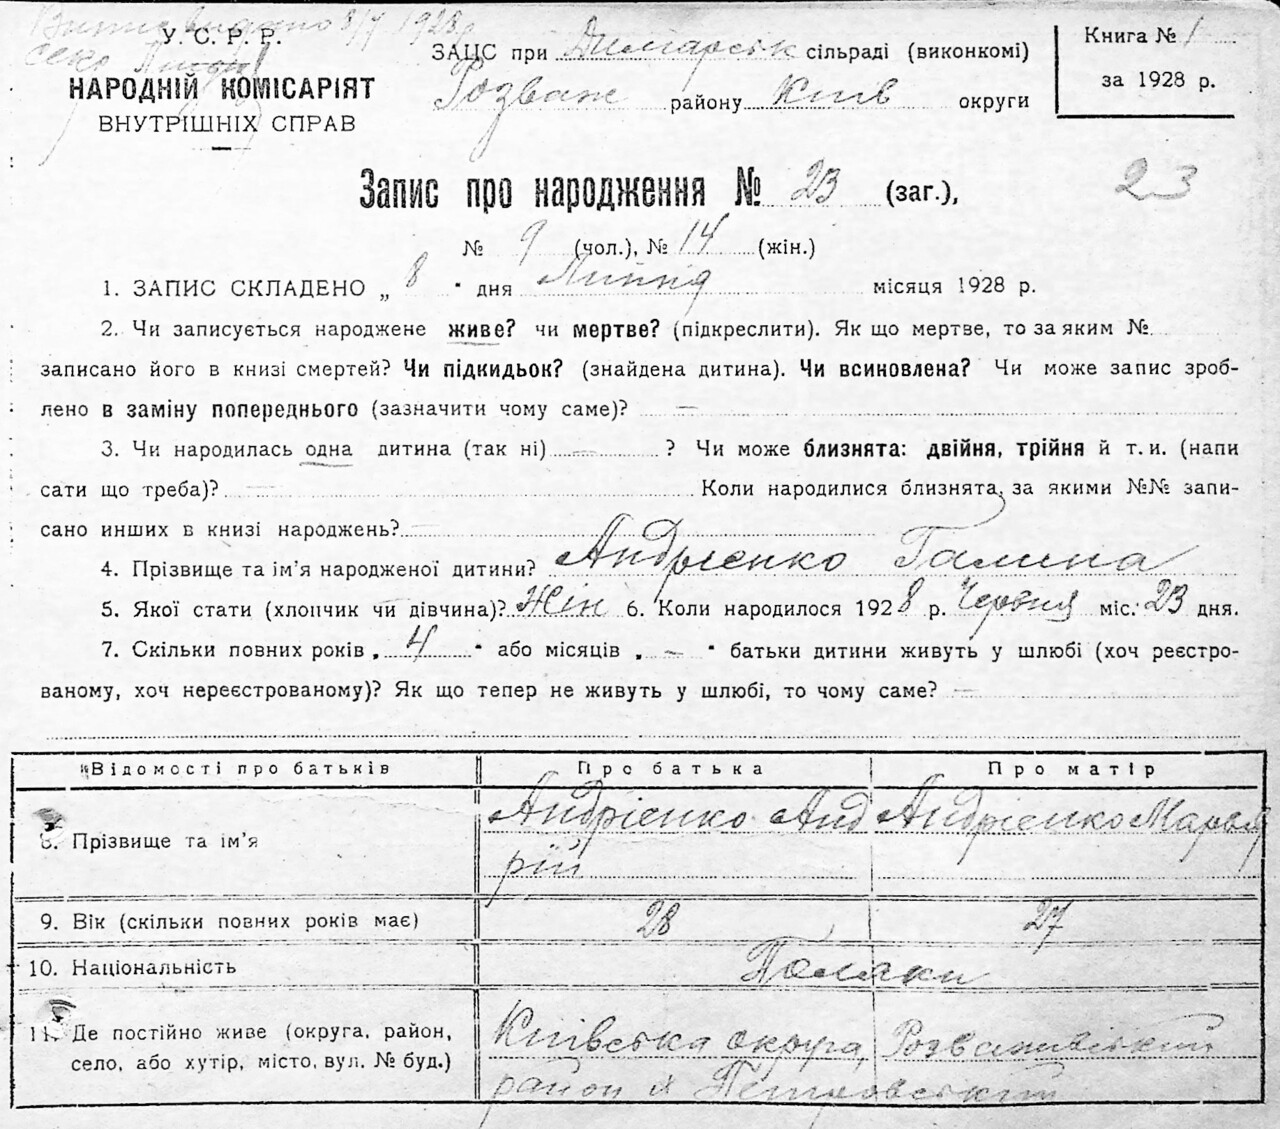 Витяг видано 8/V 1928 р
У. С. Р. Р.
НАРОДНІЙ КОМІСАРІЯТ
ВНУТРІШНІХ СПРАВ
ЗАЦС при Димарськ сільраді (виконкомі)
Розваж району Київ округи
Книга № 1
за 1928 р.
Запис про народження № 23 (заг.),
23
№ 9 (чол.), № 14 (жін.)
1. ЗАПИС СКЛАДЕНО „ 8 " дня Липня місяця 1928 р.
2. Чи записується народжене живе? чи мертве? (підкреслити). Як що мертве, то за яким №
записано його в книзі смертей? Чи підкидьок? (знайдена дитина). Чи всиновлена? Чи може запис зроб-
лено в заміну попереднього (зазначити чому саме)? —
3. Чи народилась одна дитина (так ні) — ? Чи може близнята: двійня, трійня й т. и. (напи
сати що треба)? — Коли народилися близнята, за якими №№ запи-
сано инших в книзі народжень? —
4. Прізвище та ім'я народженої дитини? Андрієнко Галина
5. Якої стати (хлопчик чи дівчина)? Жін 6. Коли народилося 1928 р. Червня міс. 23 дня.
7. Скільки повних років „ 4 " або місяців „ — " батьки дитини живуть у шлюбі (хоч реєстро-
ваному, хоч нереєстрованому)? Як що тепер не живуть у шлюбі, то чому саме? —
Відомості про батьків Про батька Про матір
8. Прізвище та ім'я Андрієнко Анд Андрієнко Марья
рій
9. Вік (скільки повних років має) 28 27
10. Національність Поляки
11. Де постійно живе (округа, район, Київська округа, Розважівський
село, або хутір, місто, вул. № буд.) район х Петровський